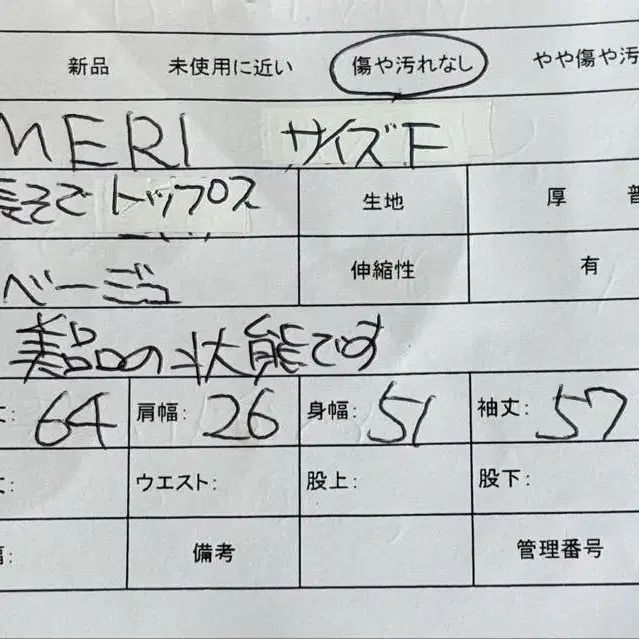 新品 未使用に近い 傷や汚れなし やや傷や汚
MERI サイズF
長そでトップス 生地 厚 普
ベージュ 伸縮性 有
美品の状態です
丈: 64 肩幅: 26 身幅: 51 袖丈: 57
丈: ウエスト: 股上: 股下:
幅: 備考 管理番号